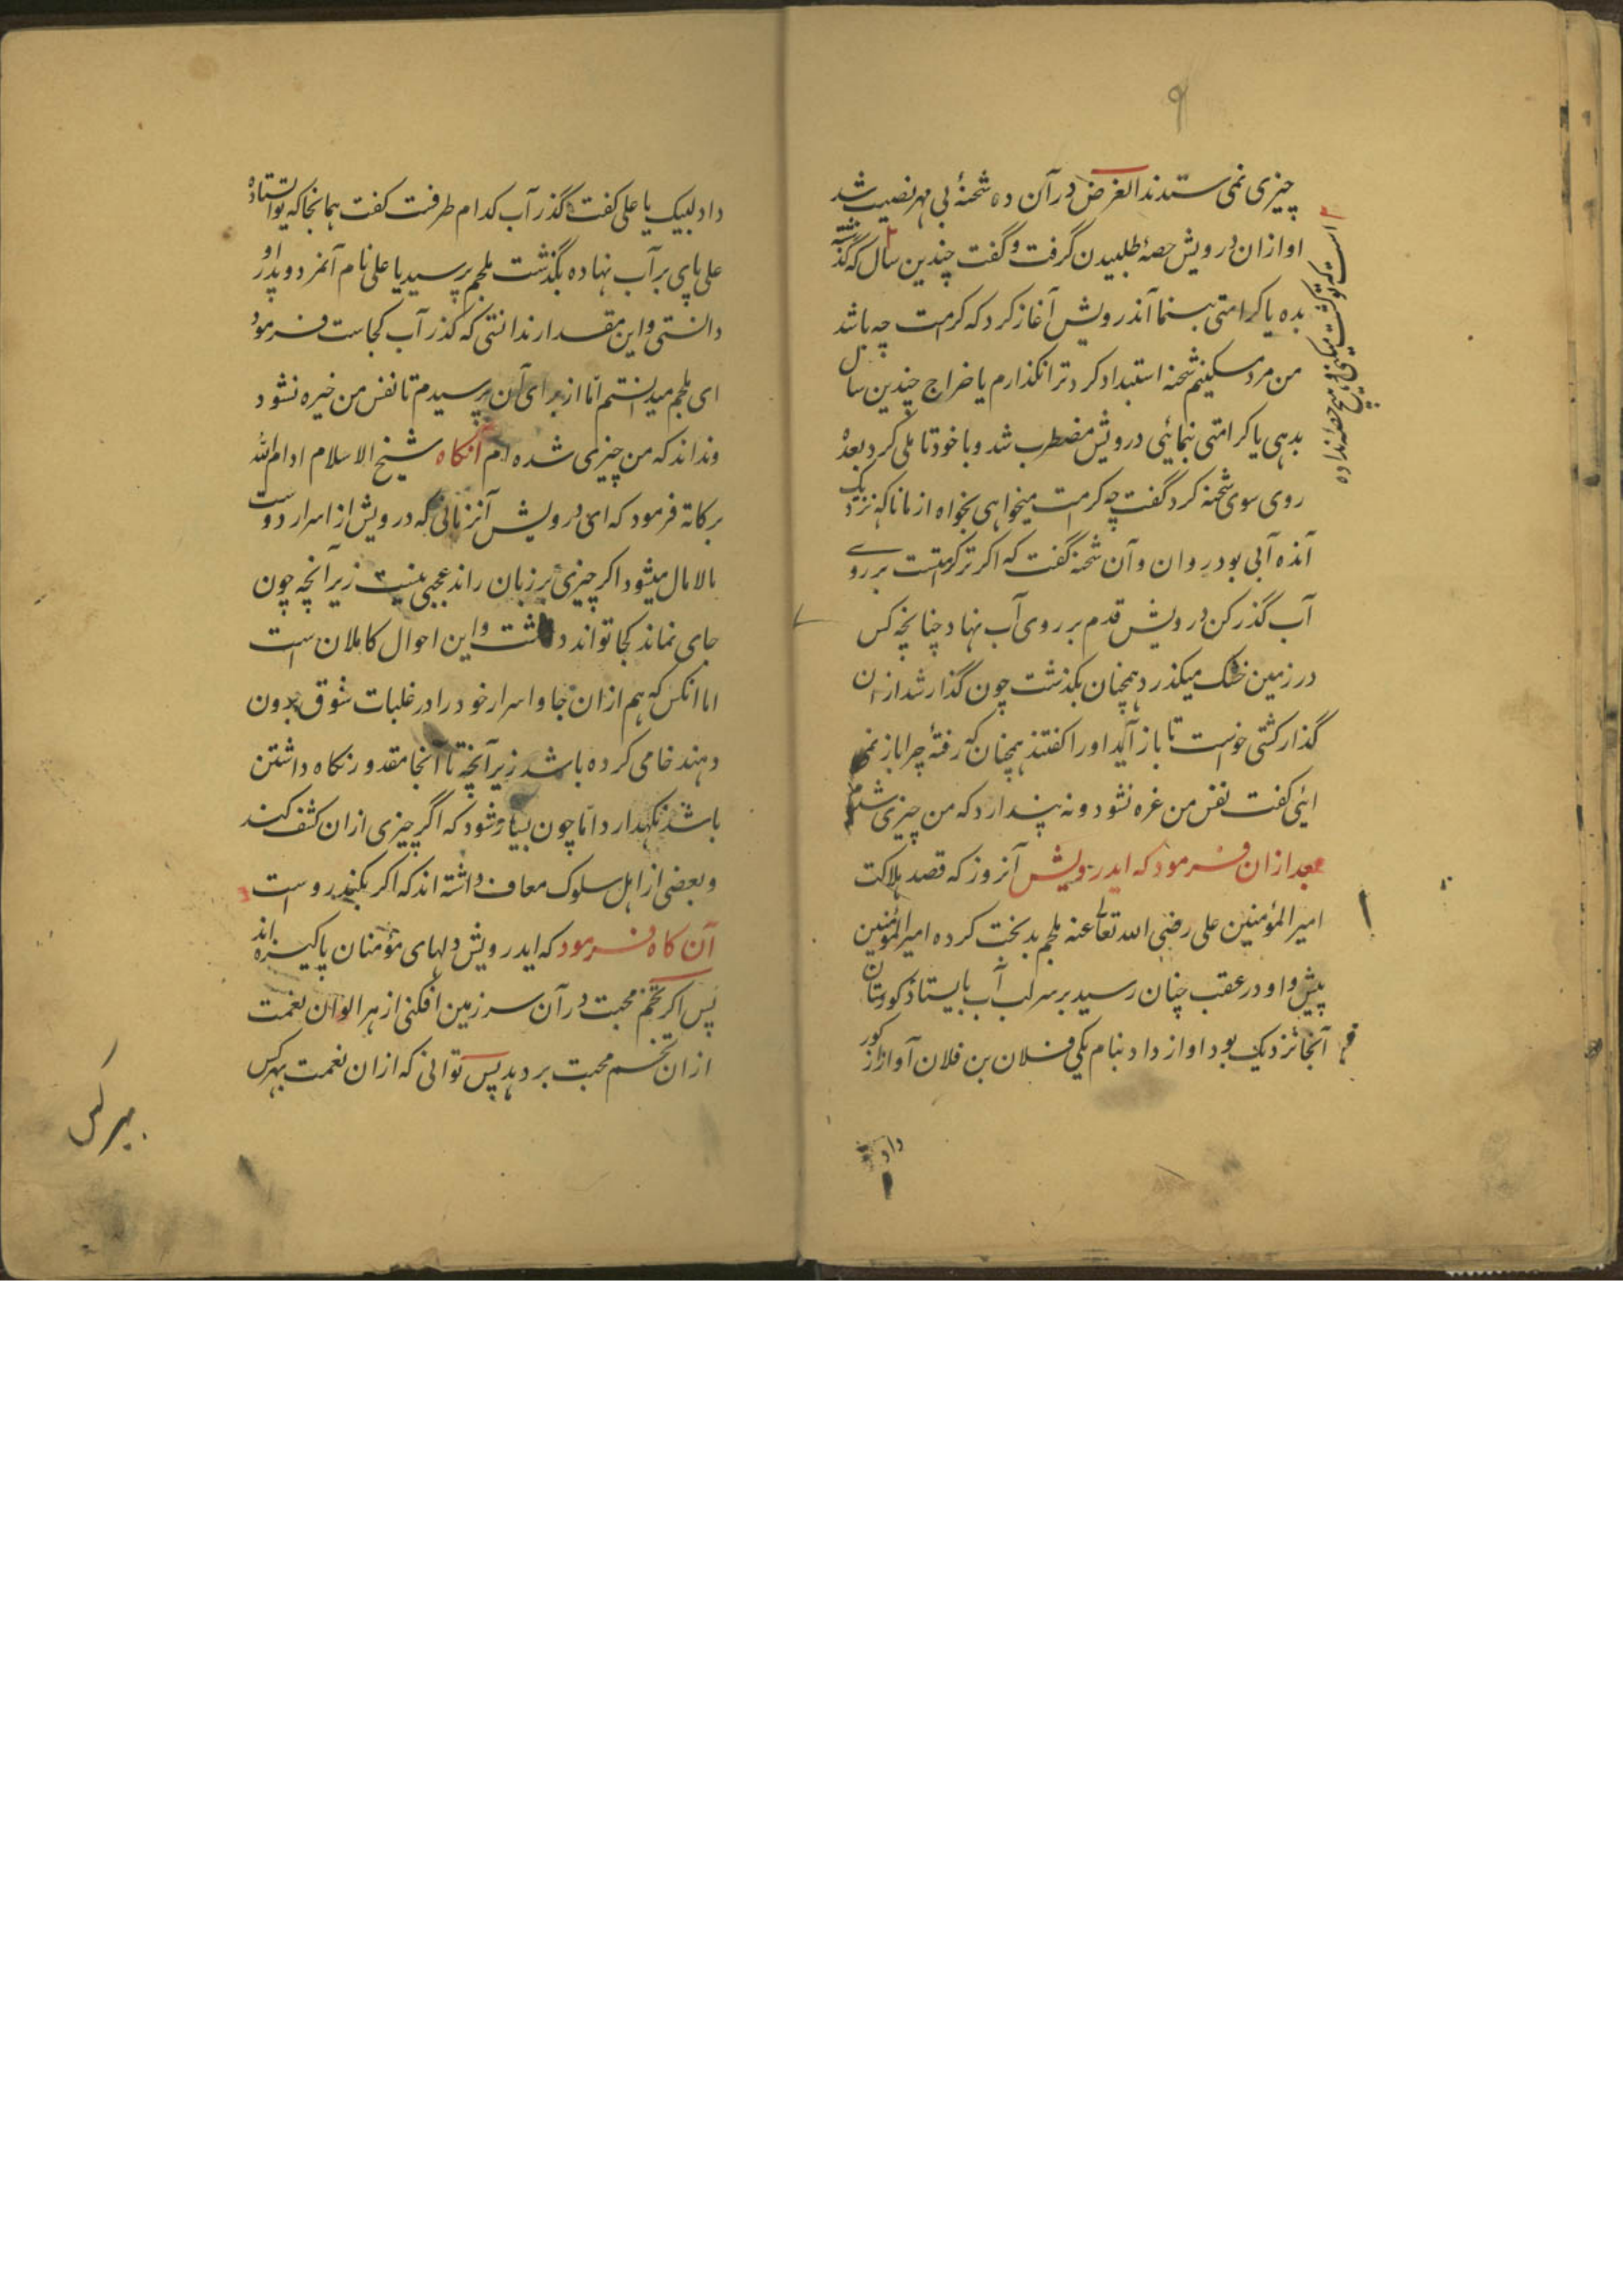 ۹
چیزی نمی ستدند الغرض در آن ده شحنهٔ بی مهر نصیب شد
او ازان درویش حصهٔ طلبیدن گرفت و گفت چندین سال که گذشته
است که تو کشت میکنی و هیچ حصه نداده
بده یا کرامتی بنما آندرویش آغاز کرد که کرامت چه باشد
من مرد مسکینم شحنه استبداد کرد ترا نکذارم یا خراج چندین سال
بدهی یا کرامتی بنمایئی درویش مضطرب شد و با خود تاملی کرد بعدهٔ
روی سوی شحنه کرد گفت چه کرامت میخواهی بخواه از ما ناکه نزدیک
آنده آبی بود روان و آن شحنه گفت که اکر ترا کرامتست بر روے
آب گذر کن درویش قدم بر روی آب نهاد چنانچه کس
در زمین خشک میکذرد همچنان بکذشت چون گذار شد ازان
گذار کشتی خواست تا باز آید او را کفتند همچنان که رفتهٔ چرا باز نمی
ایئی کفت نفس من غره نشود و نه پندارد که من چیزی شدم
بعد ازان فرمود که ایدرویش آنروز که قصد هلاکت
امیر المؤمنین علی رضی الله تعالی عنه ملجم بدبخت کرده امیر المؤمنین
پیش و او در عقب چنان رسید بر سر لب آب بایستاد کورستان
آنجا نزدیک بود اواز داد بنام یکی فلان بن فلان آواز از کور
داد
داد لبیک یا علی کفت گذر آب کدام طرفست کفت همانجا که تو استادهٔ
علی پای بر آب نهاده بگذشت ملجم پرسید یا علی نام آنمرد و پدر او
دانستی و این مقدار ندانستی که کذر آب کجاست فرمود
ای ملجم میدانستم امّا از برای آن پرسیدم تا نفس من خیره نشود
و نداند که من چیزی شده ام آنکاه شیخ الاسلام ادام الله
برکاته فرمود که ای درویش آنزمانی که درویش از اسرار دوست
مالامال میشود اکر چیزی بر زبان راند عجبی نیست زیرآنچه چون
جای نماند کجا تواند داشت و این احوال کاملان ست
اما انکس که هم ازان جا و اسرار خود را در غلبات شوق بیرون
دهند خامی کرده باشد زیرآنچه تا آنجا مقدور نکاه داشتن
باشد نکهدارد امّا چون بسیار شود که اگر چیزی ازان کشف کند
و بعضی از اهل سلوک معاف داشته اند که اکر بکند رواست
آن کاه فرمود که ایدرویش دلهای مؤمنان پاکیزه اند
پس اکر تخم محبت در آن سر زمین افکنی از هر الوان نعمت
ازان تخم محبت بر دهد پس توانی که ازان نعمت بهر کس
بهر کس